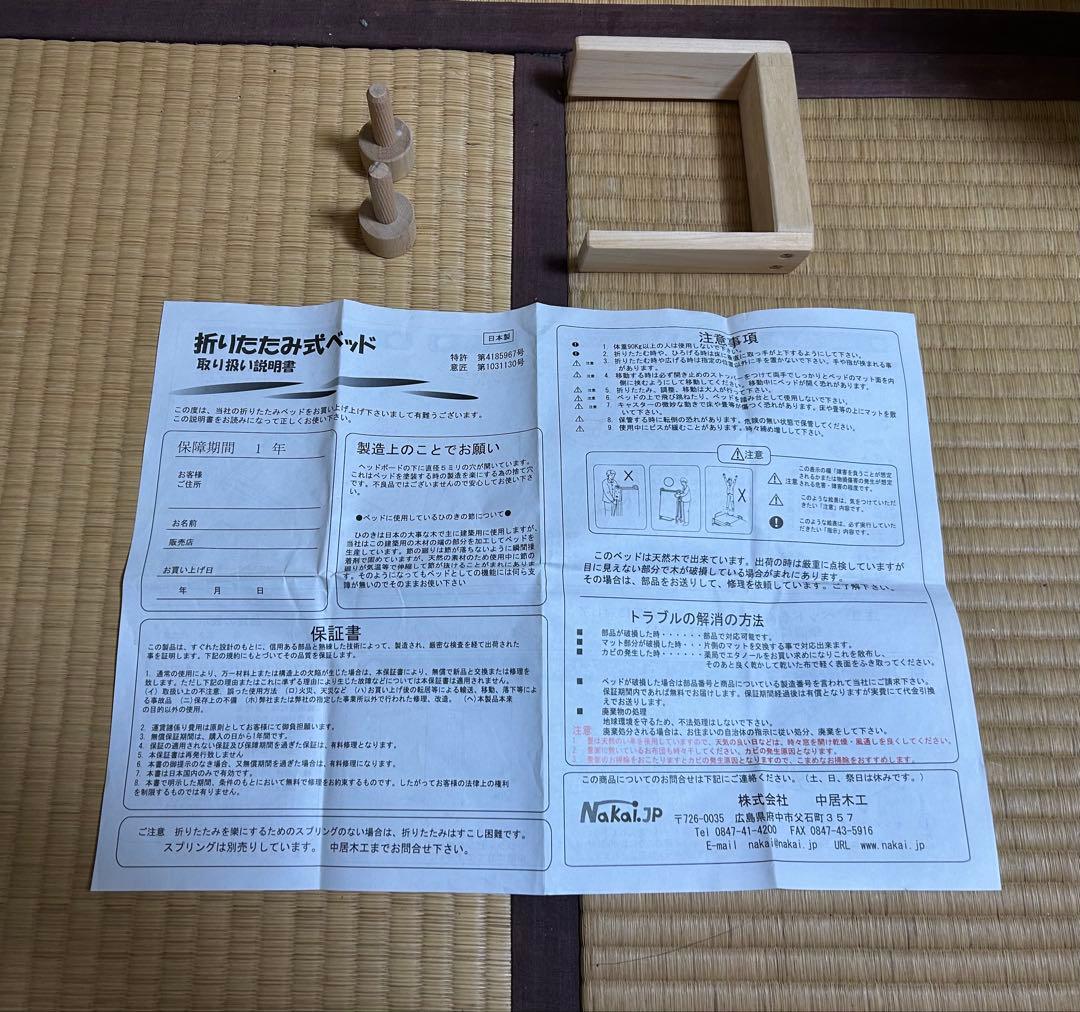 折りたたみ式ベッド
取り扱い説明書
日本製
特許 第4185967号
意匠 第1031130号
この度は、当社の折りたたみベッドをお買い上げ上げ下さいまして有難うございます。
この説明書をお読みになって正しくお使い下さい。
保障期間 1 年
お客様
ご住所
お名前
販売店
お買い上げ日
年 月 日
製造上のことでお願い
ヘッドボードの下に直径5ミリの穴が開いています。
これはベッドを塗装する時の製造を楽にする為の捨て穴
です。不良品ではございませんので安心してお使い下さ
い。
●ベッドに使用しているひのきの節について●
ひのきは日本の大事な木で主に建築用に使用しますが、
当社はこの建築用の木材の端の部分を加工してベッドを
生産しています。節の廻りは節が落ちないように瞬間接
着剤で固めていますが、天然の素材のため使用中に節の
廻りが気温等で伸縮して節が抜けることがまれにありま
す。そのようになってもベッドとしての機能には何ら支
障が無いのでそのままお使い下さい
保証書
この製品は、すぐれた設計のもとに、信用ある部品と熟練した技術によって、製造され、厳密な検査を経て出荷された
事を証明します。下記の規約にもとづいてその品質を保証します。
1. 通常の使用により、万一材料上または構造上の欠陥が生じた場合は、本保証書により、無償で新品と交換または修理を
致します。ただし下記の理由またはこれに準ずる理由により生じた故障などについては本保証書は適用されません。
(イ)取扱い上の不注意、誤った使用方法 (ロ)火災、天災など (ハ)お買い上げ後の転居等による輸送、移動、落下等によ
る事故品 (ニ)保存上の不備 (ホ)弊社または弊社の指定した事業所以外で行われた修理、改造。 (ヘ)本製品本来
の目的以外の使用。
2. 運賃諸係り費用は原則としてお客様にて御負担願います。
3. 無償保証期間は、購入の日から1年間です。
4. 保証の適用されない保証及び保障期間を過ぎた保証は、有料修理となります。
5. 本保証書は再発行致しません。
6. 本書の御提示のなき場合、又無償期間を過ぎた場合は、有料修理になります。
7. 本書は日本国内のみで有効です。
8. 本書で明示した期間、条件のもとにおいて無料で修理をお約束するものです。したがってお客様の法律上の権利
を制限するものでは有りません。
ご注意 折りたたみを楽にするためのスプリングのない場合は、折りたたみはすこし困難です。
スプリングは別売りしています。 中居木工までお問合せ下さい。
注意事項
1. 体重90Kg以上の人は使用しないで下さい。
2. 折りたたむ時や、ひろげる時は床に垂直に取っ手が上下するようにして下さい。
注意 3. 折りたたむ時や広げる時は指定の位置以外に手を置かないで下さい。手や指が挟まれる事
があります。
注意 4. 移動する時は必ず開き止めのストッパーをつけて両手でしっかりとベッドのマット面を内
側に挟むようにして移動してください。移動中にベッドが開く恐れがあります。
注意 5. 折りたたみ、調整、移動は大人が行って下さい。
注意 6. ベッドの上で飛び跳ねたり、ベッドを踏み台として使用しないで下さい。
注意 7. キャスターの微妙な動きで床や畳等が傷つく恐れがあります。床や畳等の上にマットを敷
いて下さい。
8. 保管する時に転倒の恐れがあります。危険の無い状態で保管してください。
9. 使用中にビスが緩むことがあります。時々締め増しして下さい。
注意
注意
この表示の欄「障害を負うことが想定
されるかまたは物損傷害の発生が想定
される危害・障害の程度です。
このような絵表は、気をつけていただ
きたい「注意」内容です。
このような絵表は、必ず実行していた
だきたい「指示」内容です。
このベッドは天然木で出来ています。出荷の時は厳重に点検していますが
目に見えない部分で木が破損している場合がまれにあります。
その場合は、部品をお送りして、修理を依頼しています。ご了解下さい。
トラブルの解消の方法
■ 部品が破損した時・・・・・・部品で対応可能です。
■ マット部分が破損した時・・・片側のマットを交換する事で対応出来ます。
■ カビの発生した時・・・・・・薬局でエタノールをお買い求めになりこれを散布し、
そのあと良く乾かして乾いた布で軽く表面をふき取ってください。
■ ベッドが破損した場合は部品番号と商品についている製造番号を言われて当社にご請求下さい。
保証期間内であれば無料でお届けします。保証期間経過後は有償となりますが実費にて代金引換
えでお送りします。
■ 廃棄物の処理
地球環境を守るため、不法処理はしないで下さい。
廃棄処分される場合は、お住まいの自治体の指示に従い処分、廃棄をして下さい。
注意
1. 畳は天然のい草を使用していますので、天気の良い日などは、時々窓を開け乾燥・風通しを良くしてください。
2. 畳面に敷いているお布団も時々干してください。カビの発生原因となります。
3. 畳面のお掃除をおこたりますとカビの発生原因となりますので、こまめなお掃除をおすすめします。
この商品についてのお問合せは下記にご連絡ください。(土、日、祭日は休みです。)
Nakai.JP
株式会社 中居木工
〒726-0035 広島県府中市父石町357
Tel 0847-41-4200 FAX 0847-43-5916
E-mail nakai@nakai.jp URL www.nakai.jp